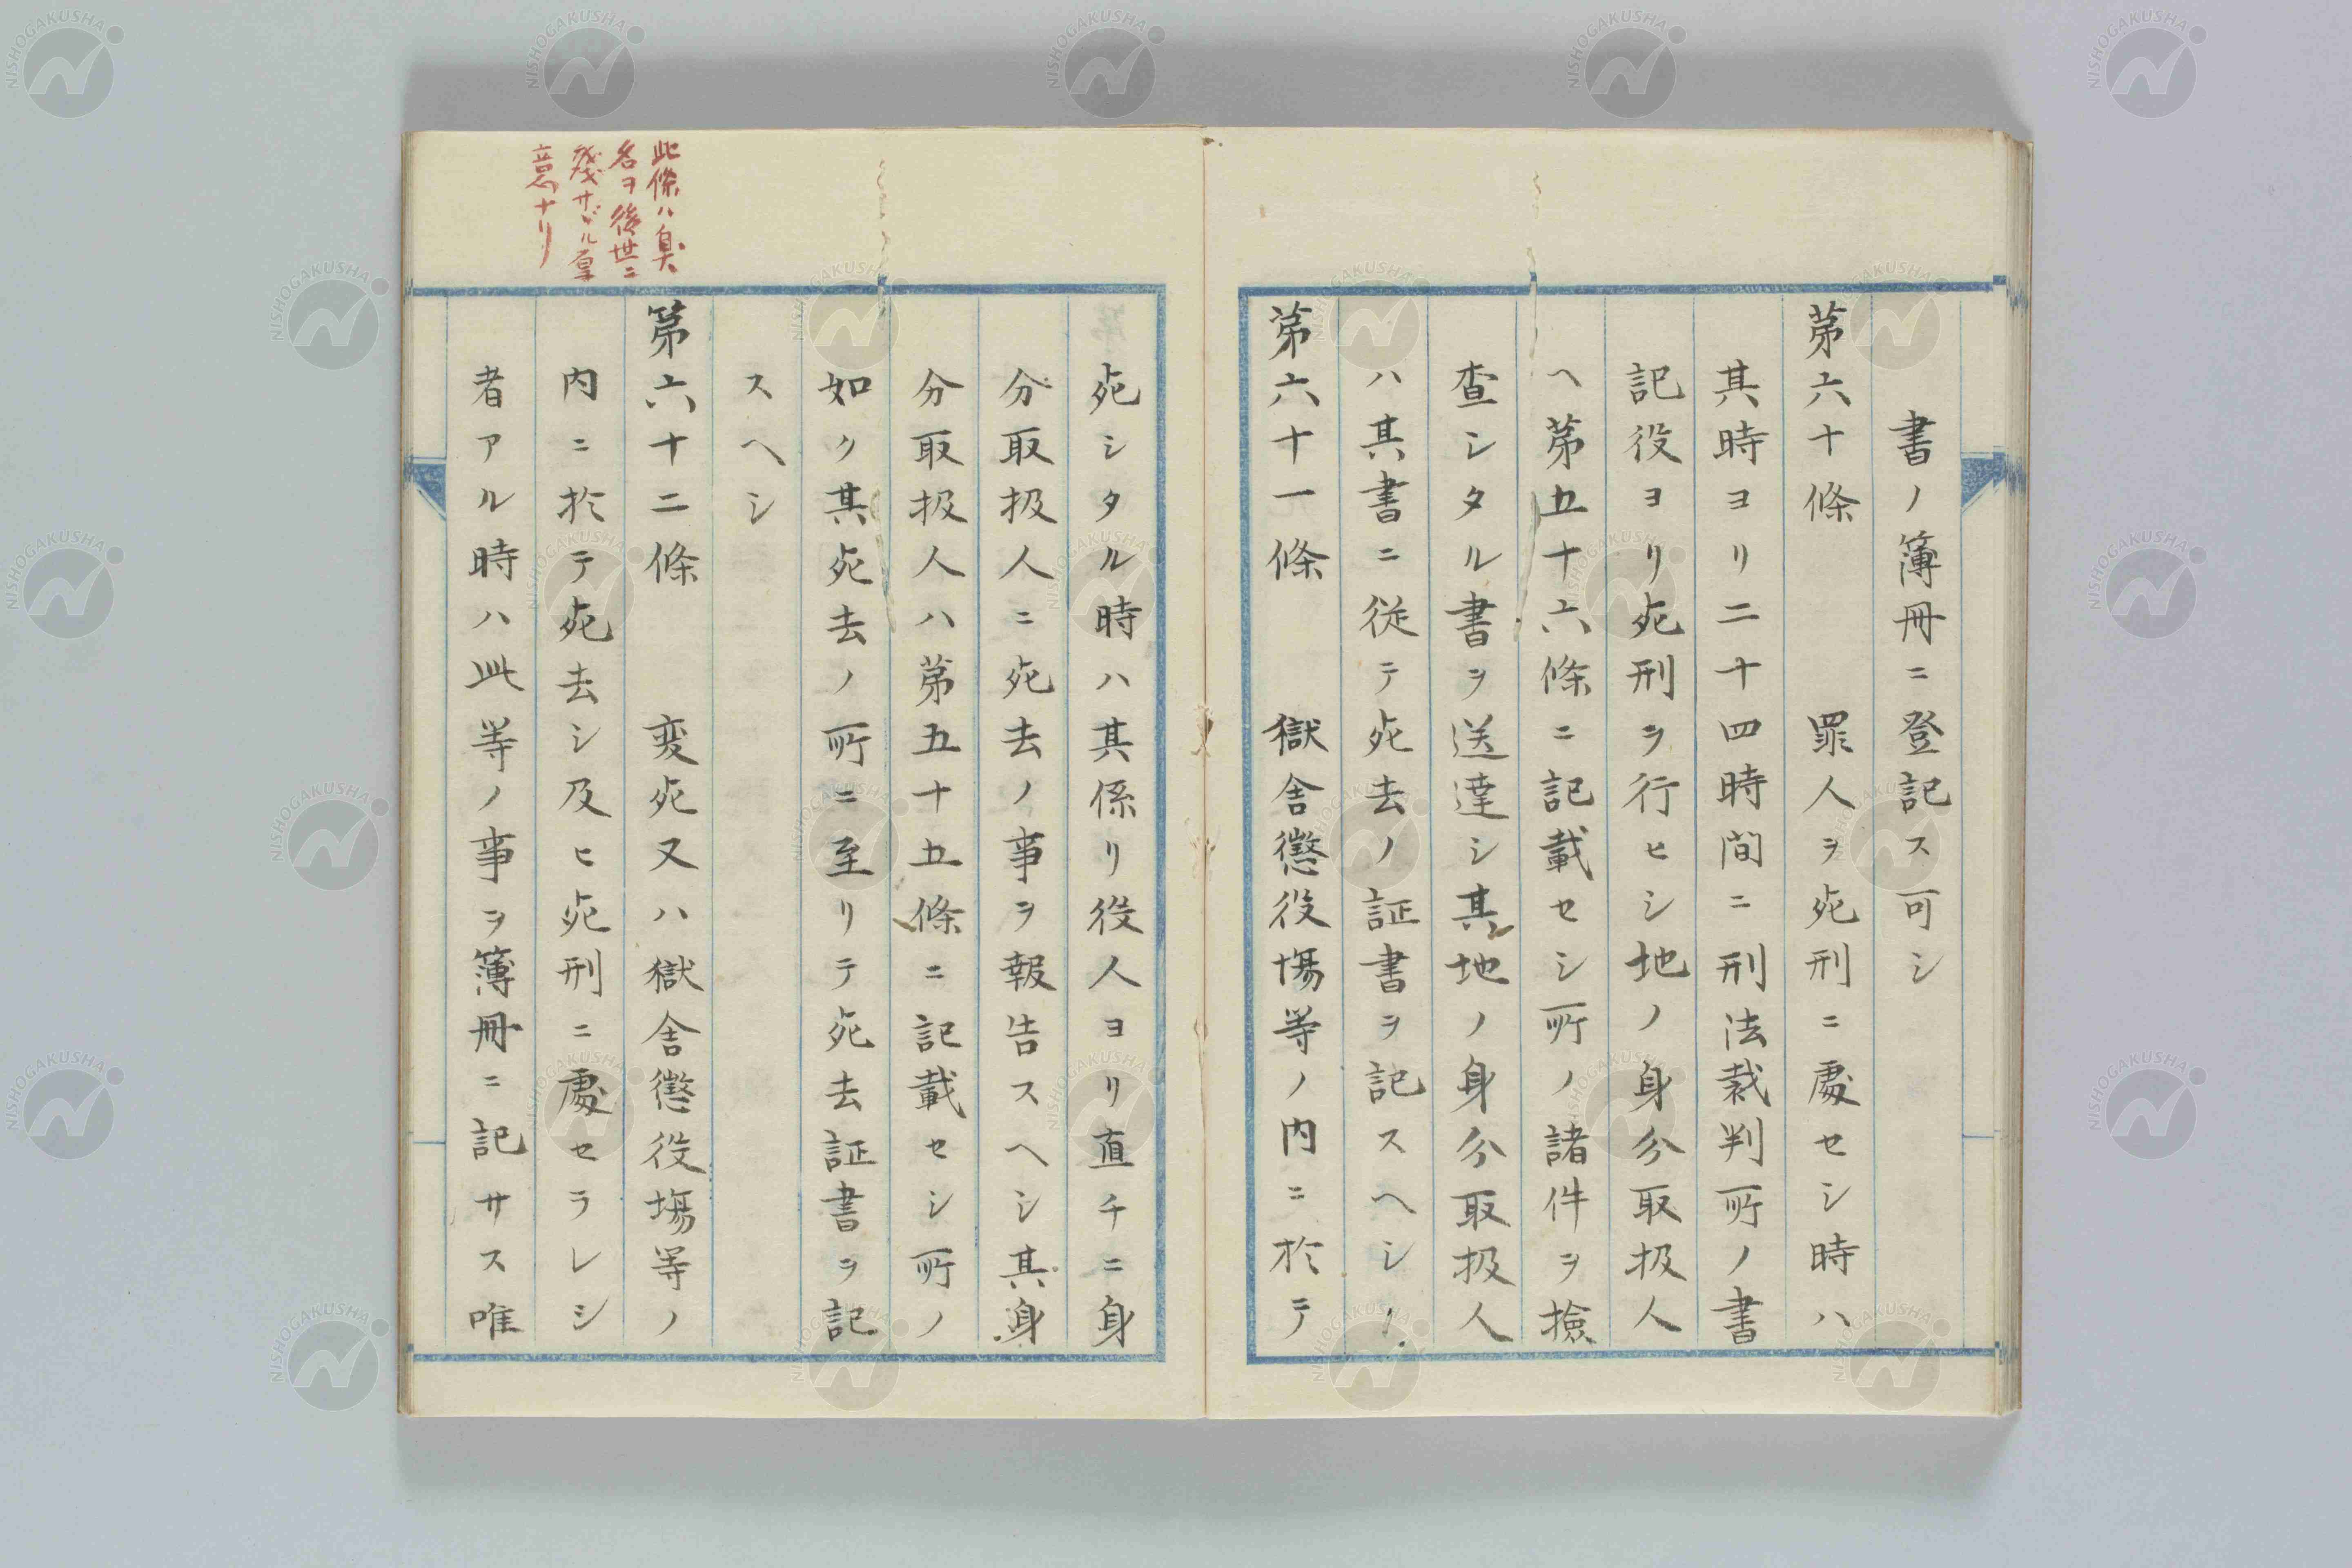 書ノ簿冊ニ登記ス可シ
第六十條　罪人ヲ死刑ニ處セシ時ハ
其時ヨリ二十四時間ニ刑法裁判所ノ書
記役ヨリ死刑ヲ行ヒシ地ノ身分取扱人
ヘ第五十六條ニ記載セシ所ノ諸件ヲ撿
査シタル書ヲ送達シ其地ノ身分取扱人
ハ其書ニ従テ死去ノ証書ヲ記スヘシ
第六十一條　獄舎懲役場等ノ内ニ於テ
死シタル時ハ其係リ役人ヨリ直チニ身
分取扱人ニ死去ノ事ヲ報告スヘシ其身
分取扱人ハ第五十五條ニ記載セシ所ノ
如ク其死去ノ所ニ至リテ死去証書ヲ記
スヘシ
此條ハ臭
名ヲ後世ニ
殘サヾル厚
意ナリ
第六十二條　変死又ハ獄舎懲役場等ノ
内ニ於テ死去シ及ヒ死刑ニ處セラレシ
者アル時ハ此等ノ事ヲ簿冊ニ記サス唯
NISHOGAKUSHA